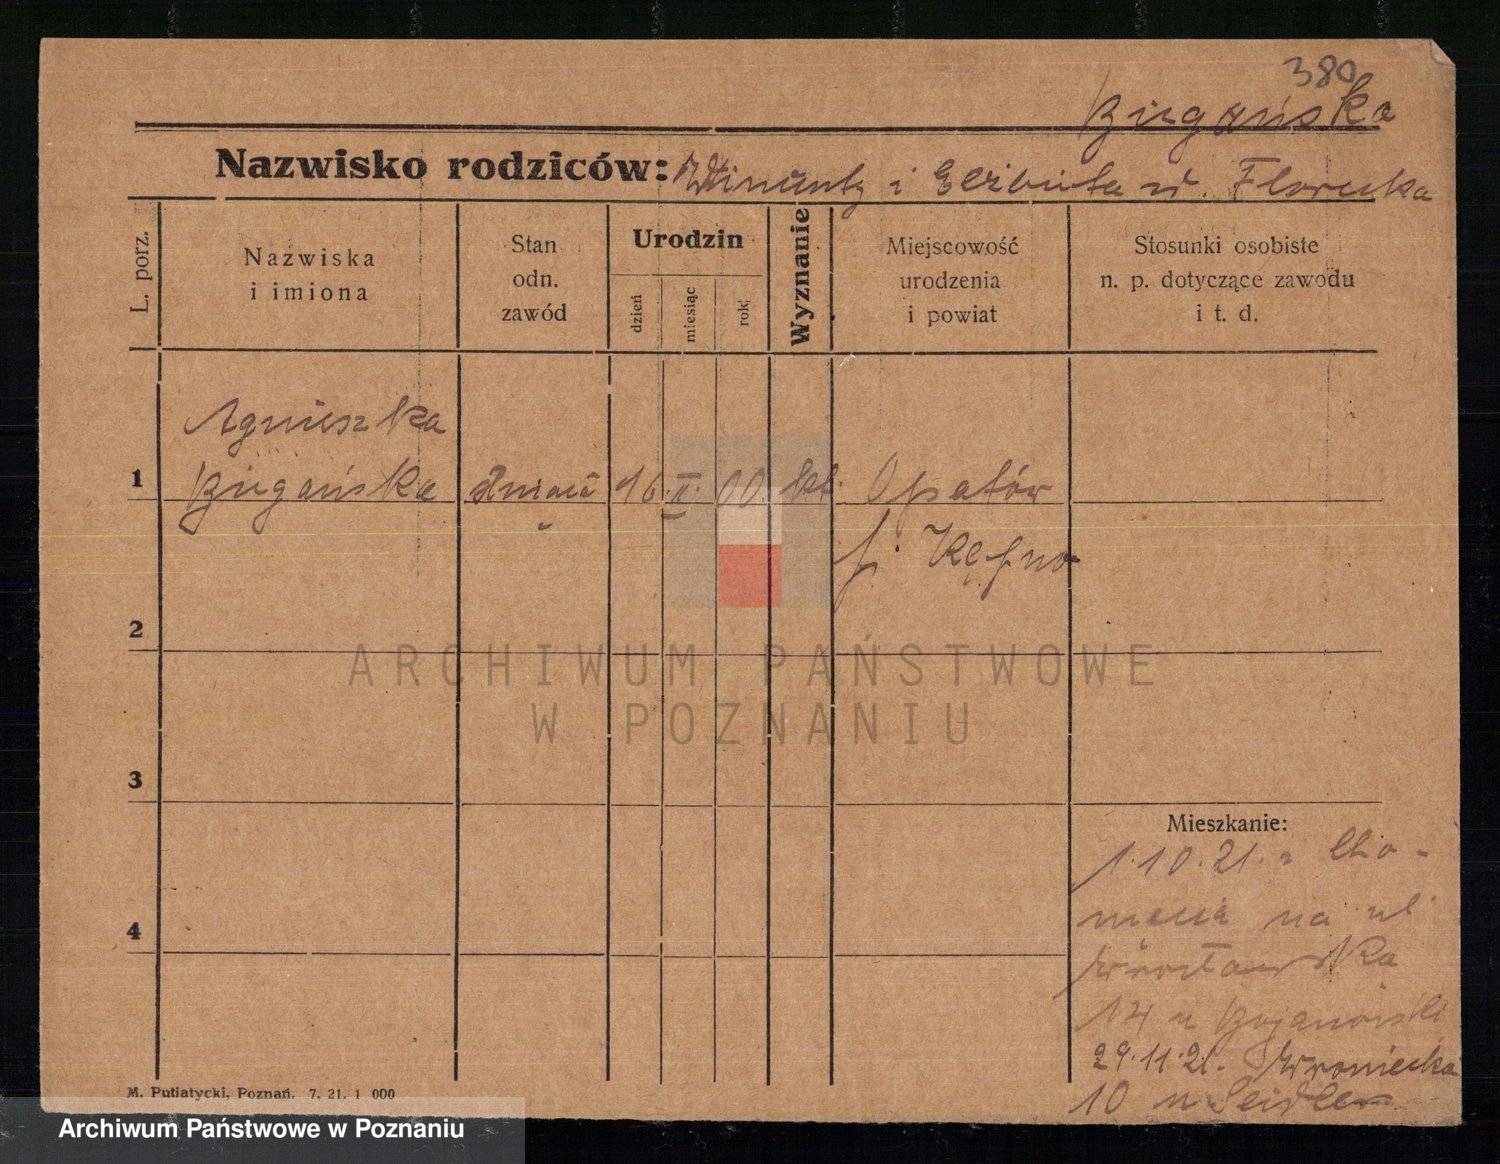 380
Biegańska
Nazwisko rodziców: i Elżbieta
L. porz.
Nazwiska
i imiona
Stan
odn.
zawód
Urodzin
dzień
miesiąc
rok
Wyznanie
Miejscowość
urodzenia
i powiat
Stosunki osobiste
n. p. dotyczące zawodu
i t. d.
Agnieszka
1 Biegańska 16. II. 00 kt. Opatów
p. Kępno
2
ARCHIWUM PAŃSTWOWE
W POZNANIU
3
Mieszkanie:
1.10.21. z
4 na ul
Wrocławska
14 u Bojanowski
29.11.21. Wroniecka
10 u Seidler
M. Putiatycki, Poznań. 7. 21. 1 000
Archiwum Państwowe w Poznaniu